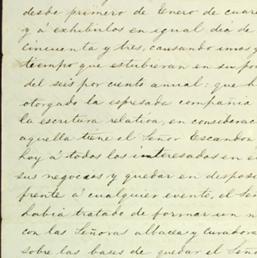 desde primero de Enero de cuare
y á exhibirlos en igual dia de
cincuenta y tres, causando unos y
tiempo que estubieran en su po
del seis por ciento anual: que h
otorgado la espresada compañia
la escritura relativa, en considerac
aquella tiene el Señor Escandon
hoy á todos los interesados en e
sus negocios y quedar en disposi
frente á cualquier evento, el Se
habia tratado de formar un n
con las Señoras albacea y curadora
sobre las bases de quedar el Seño